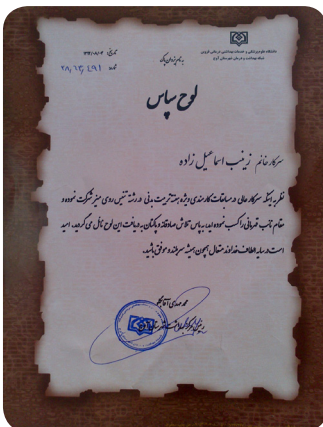 دانشگاه علوم پزشکی و خدمات بهداشتی درمانی قزوین
شبکه بهداشت و درمان شهرستان
به نام یزدان پاک
تاریخ:
۲۸,۱۳,۴۹۱
لوح سپاس
سرکار خانم زینب اسماعیل زاده
نظر به اینکه سرکار عالی در مسابقات کارمندی ویژه هفته تربیت بدنی در رشته تنیس روی میز شرکت نموده و
مقام نائب قهرمانی را کسب نموده اید، به پاس تلاش صادقانه و پاکتان به دریافت این لوح نائل می گردید. امید
است در سایه الطاف خداوند متعال همچون همیشه سربلند و موفق باشید.
محمد مهدی